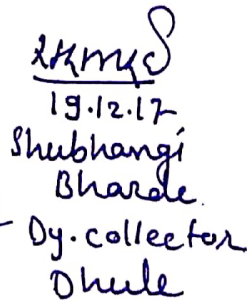 19.12.17
Shubhangi
Bharde.
- Dy. collector
Dhule